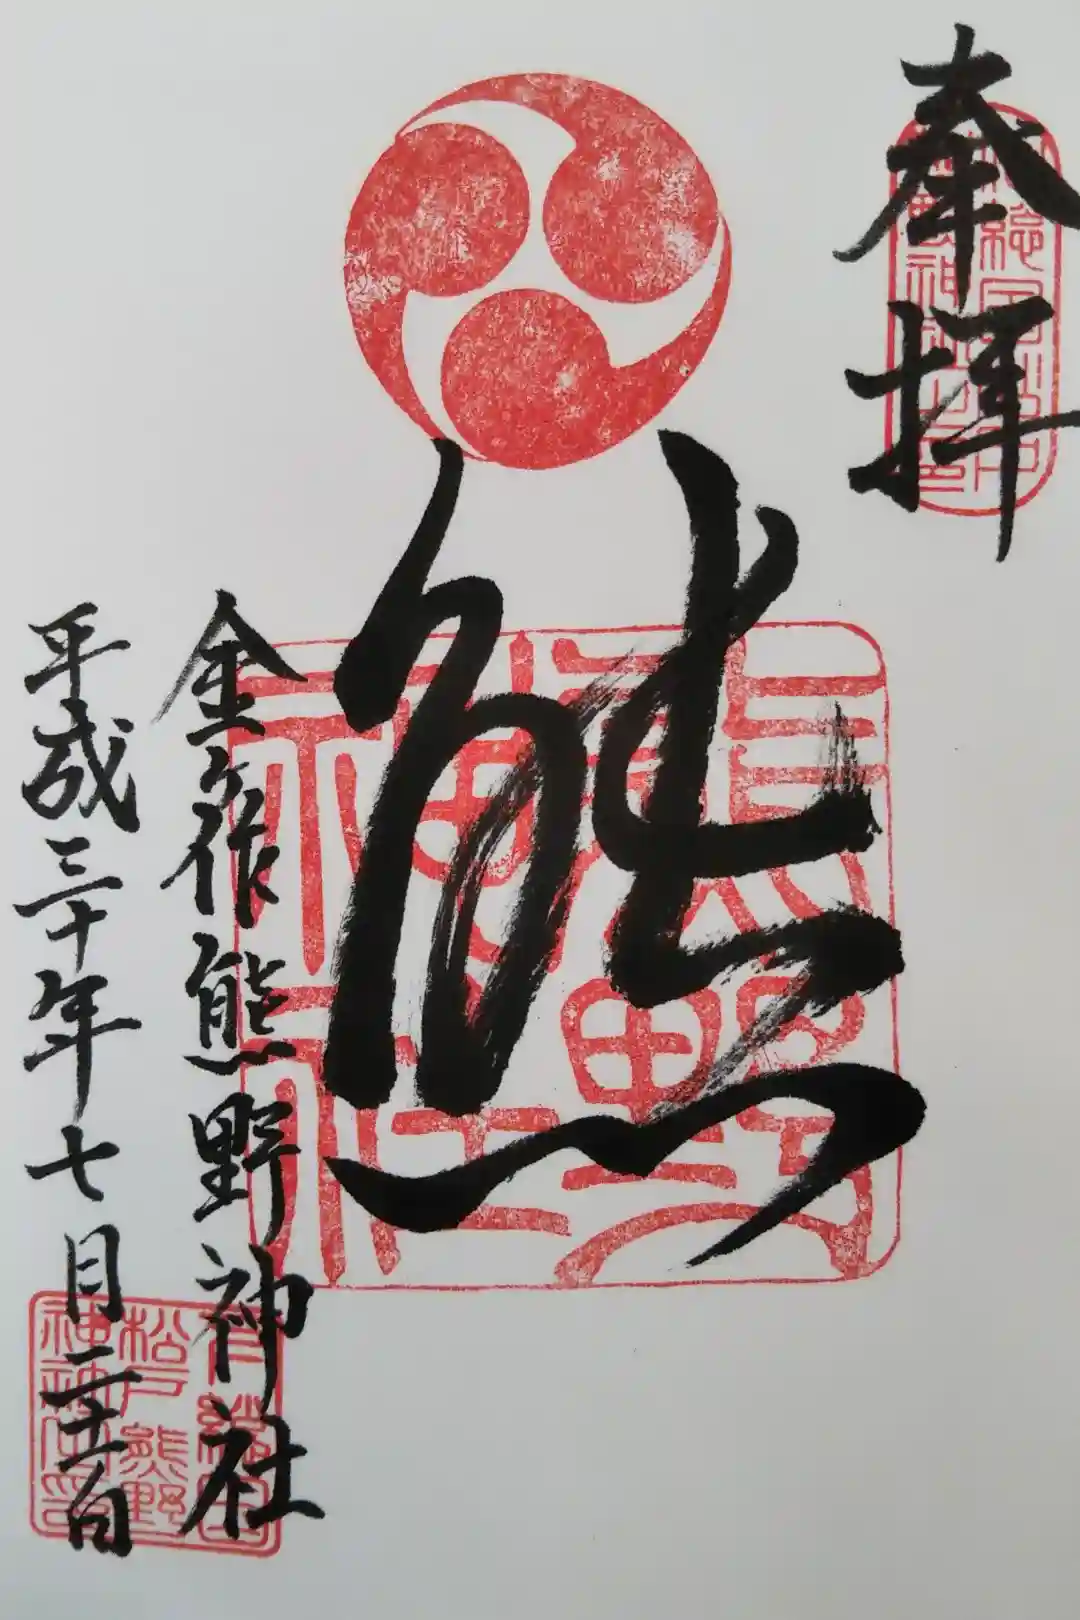 奉拝
熊
熊野
神社
金ケ作熊野神社
平成三十年七月二十一日
松戸熊野